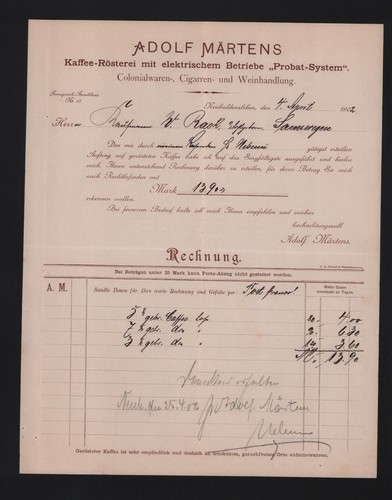 ADOLF MÄRTENS
Kaffee-Rösterei mit elektrischem Betriebe „Probat-System“.
Colonialwaren-, Cigarren- und Weinhandlung.
Fernsprech-Anschluss
No
Neuhaldensleben, den 4. April 1902
Herrn Kaufmann W. Rack, Samswegen
Das mir durch gütigst erteilten
Auftrag auf gerösteten Kaffee habe ich auf das Sorgfältigste ausgeführt und beehre
mich, Ihnen untenstehend Rechnung darüber zu erteilen, für deren Betrag Sie mich
nach Richtbefinden mit
Mark 13,90
erkennen wollen.
Bei fernerem Bedarf halte ich mich Ihnen empfohlen und zeichne
hochachtungsvoll
Adolf Märtens.
Rechnung.
Bei Beträgen unter 25 Mark kann Porto-Abzug nicht gestattet werden.
A. M.
Sandte Ihnen für Ihre werte Rechnung und Gefahr per: Post franco!
Netto Cassa
5 gebr. Caffee 4.00
gebr. do " 6.30
3 gebr. do " 3.60
M. 13.90
Neuh. den 25.4.02 Adolf Märtens
Gerösteter Kaffee ist sehr empfindlich und deshalb an trockenem, geruchfreiem Orte aufzubewahren.